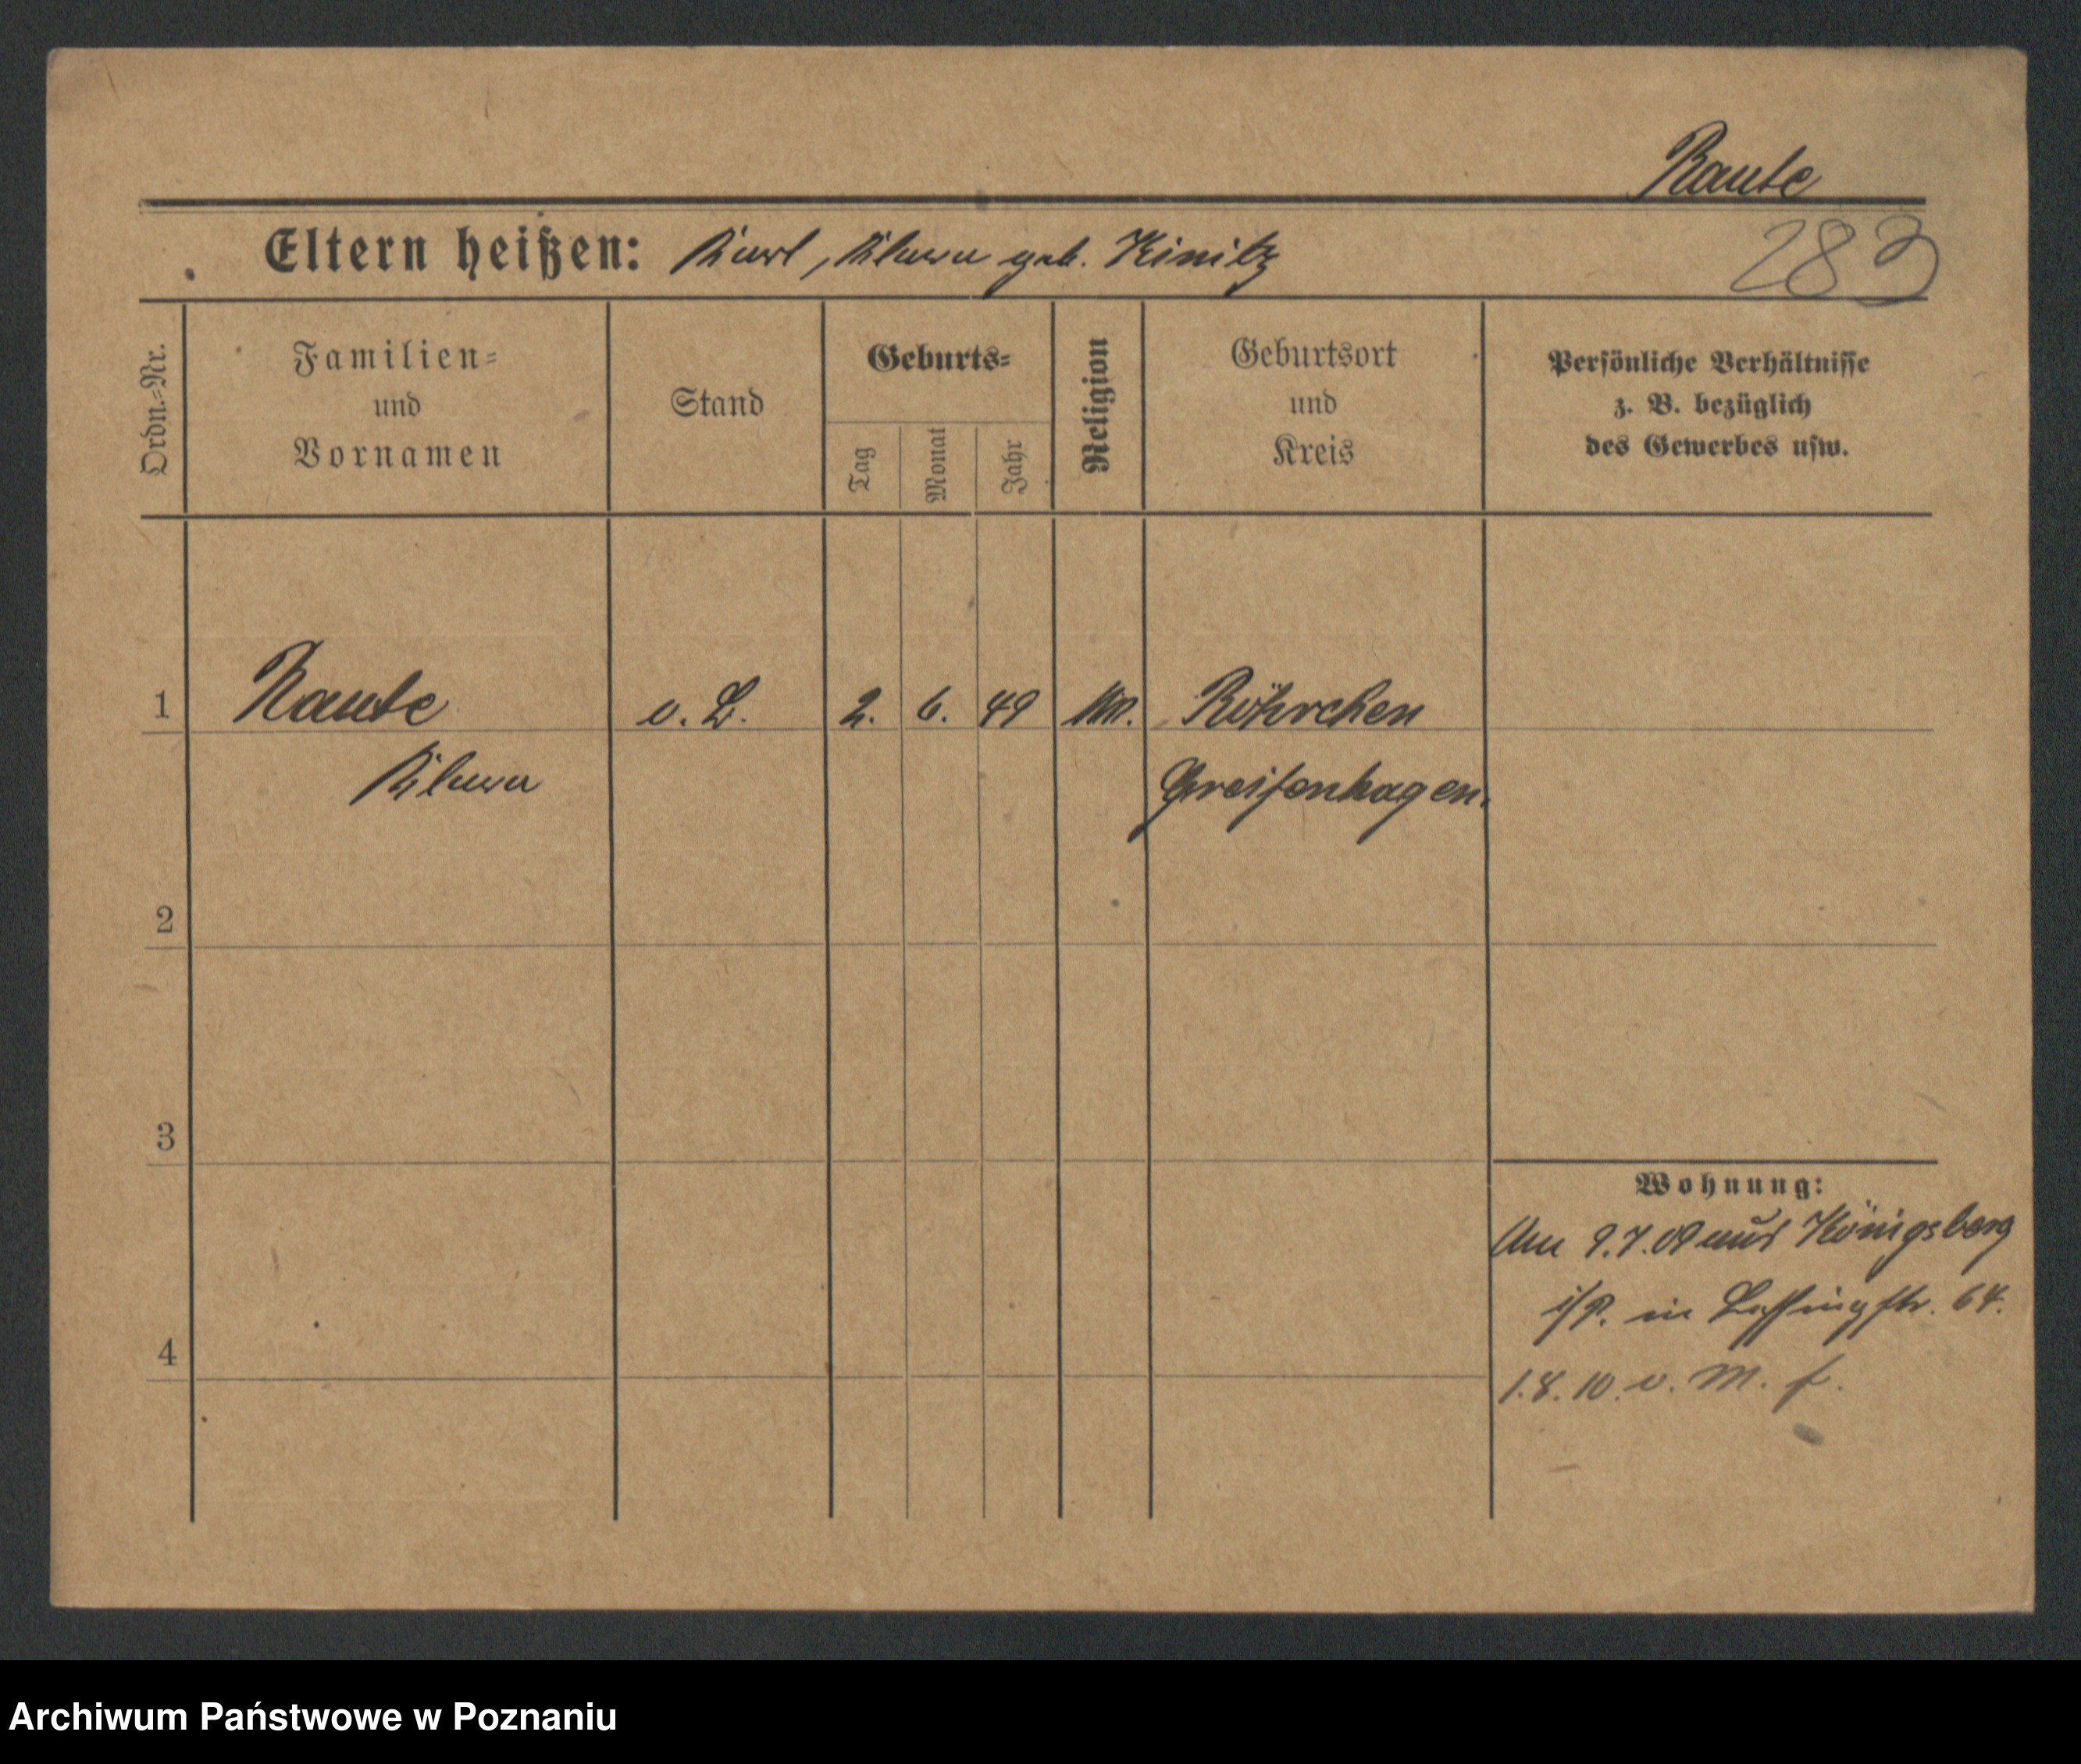 Raute
Eltern heißen: Karl, Klara geb. Kinitz
283
Ordn.=Nr.
Familien=
und
Vornamen
Stand
Geburts=
Tag
Monat
Jahr
Religion
Geburtsort
und
Kreis
Persönliche Verhältnisse
z. B. bezüglich
des Gewerbes usw.
1 Raute o. B. 2. 6. 49 Röhrchen
Klara Greifenhagen.
2
3
4
Wohnung:
Am 9.7.09 aus Königsberg
i/P. in Lessingstr. 64.
1.8.10. v. M. f.
Archiwum Państwowe w Poznaniu